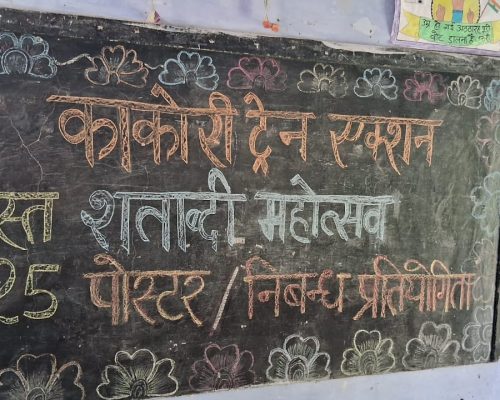 काकोरी ट्रेन एक्शन
स्त शताब्दी महोत्सव
25 पोस्टर / निबन्ध प्रतियोगिता